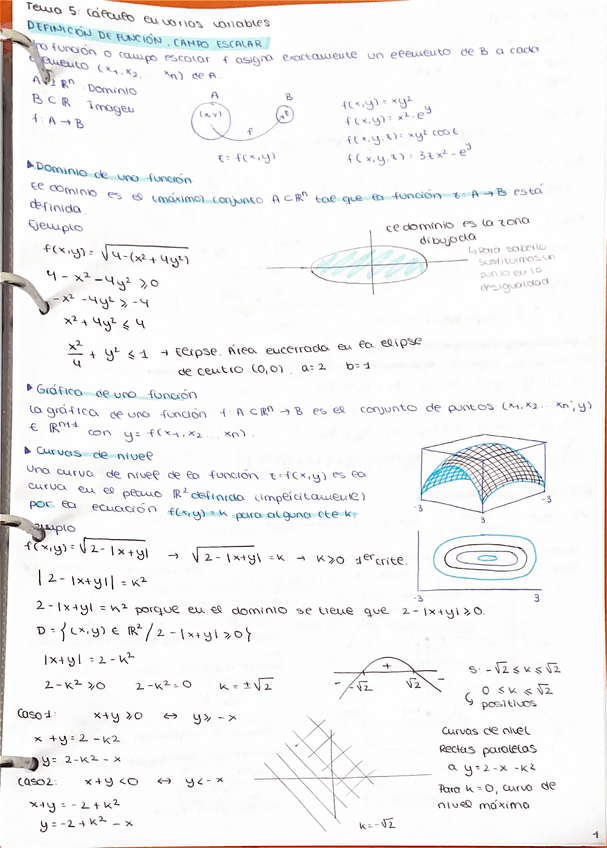 Tema 5: Cálculo en varias variables
DEFINICIÓN DE FUNCIÓN. CAMPO ESCALAR
función o campo escalar f asigna exactamente un elemento de B a cada
elemento (x₁, x₂, ... xₙ) de A.
A ⊂ ℝⁿ Dominio
B ⊂ ℝ Imagen
f: A → B
A
B
(x,y)
z
f
z = f(x,y)
f(x,y) = xy²
f(x,y) = x² · eʸ
f(x,y,z) = xy² cos z
f(x,y,z) = 3zx² - eʸ
▸ Dominio de una función
El dominio es el (máximo) conjunto A ⊂ ℝⁿ tal que la función z: A → B está
definida.
Ejemplo
f(x,y) = √(4-(x² + 4y²))
4 - x² - 4y² ≥ 0
-x² - 4y² ≥ -4
x² + 4y² ≤ 4
x²/4 + y² ≤ 1 → Elipse. Área encerrada en la elipse
de centro (0,0). a=2 b=1
el dominio es la zona
dibujada
↳ Para saberlo
sustituimos un
punto en la
desigualdad
▸ Gráfica de una función
La gráfica de una función f: A ⊂ ℝⁿ → B es el conjunto de puntos (x₁, x₂ ... xₙ, y)
∈ ℝⁿ⁺¹ con y = f(x₁, x₂ ... xₙ).
▸ Curvas de nivel
Una curva de nivel de la función z = f(x,y) es la
curva en el plano ℝ² definida (implícitamente)
por la ecuación f(x,y) = k para alguna cte k.
-3
3
3
-3
3
Ejemplo
f(x,y) = √(2 - |x+y|) → √(2 - |x+y|) = k → k ≥ 0 1er crite.
|2 - |x+y|| = k²
2 - |x+y| = k² porque en el dominio se tiene que 2 - |x+y| ≥ 0.
D = {(x,y) ∈ ℝ² / 2 - |x+y| ≥ 0}
|x+y| = 2 - k²
2 - k² ≥ 0 2 - k² = 0 k = ±√2
- -√2 + √2 -
S: -√2 ≤ k ≤ √2
↳ 0 ≤ k ≤ √2
positivos
Caso 1: x+y ≥ 0 ↔ y ≥ -x
x + y = 2 - k²
y = 2 - k² - x
Caso 2: x+y < 0 ↔ y < -x
x+y = -2 + k²
y = -2 + k² - x
k = -√2
Curvas de nivel
Rectas paralelas
a y = 2 - x - k²
Para k = 0, curva de
nivel máxima
1